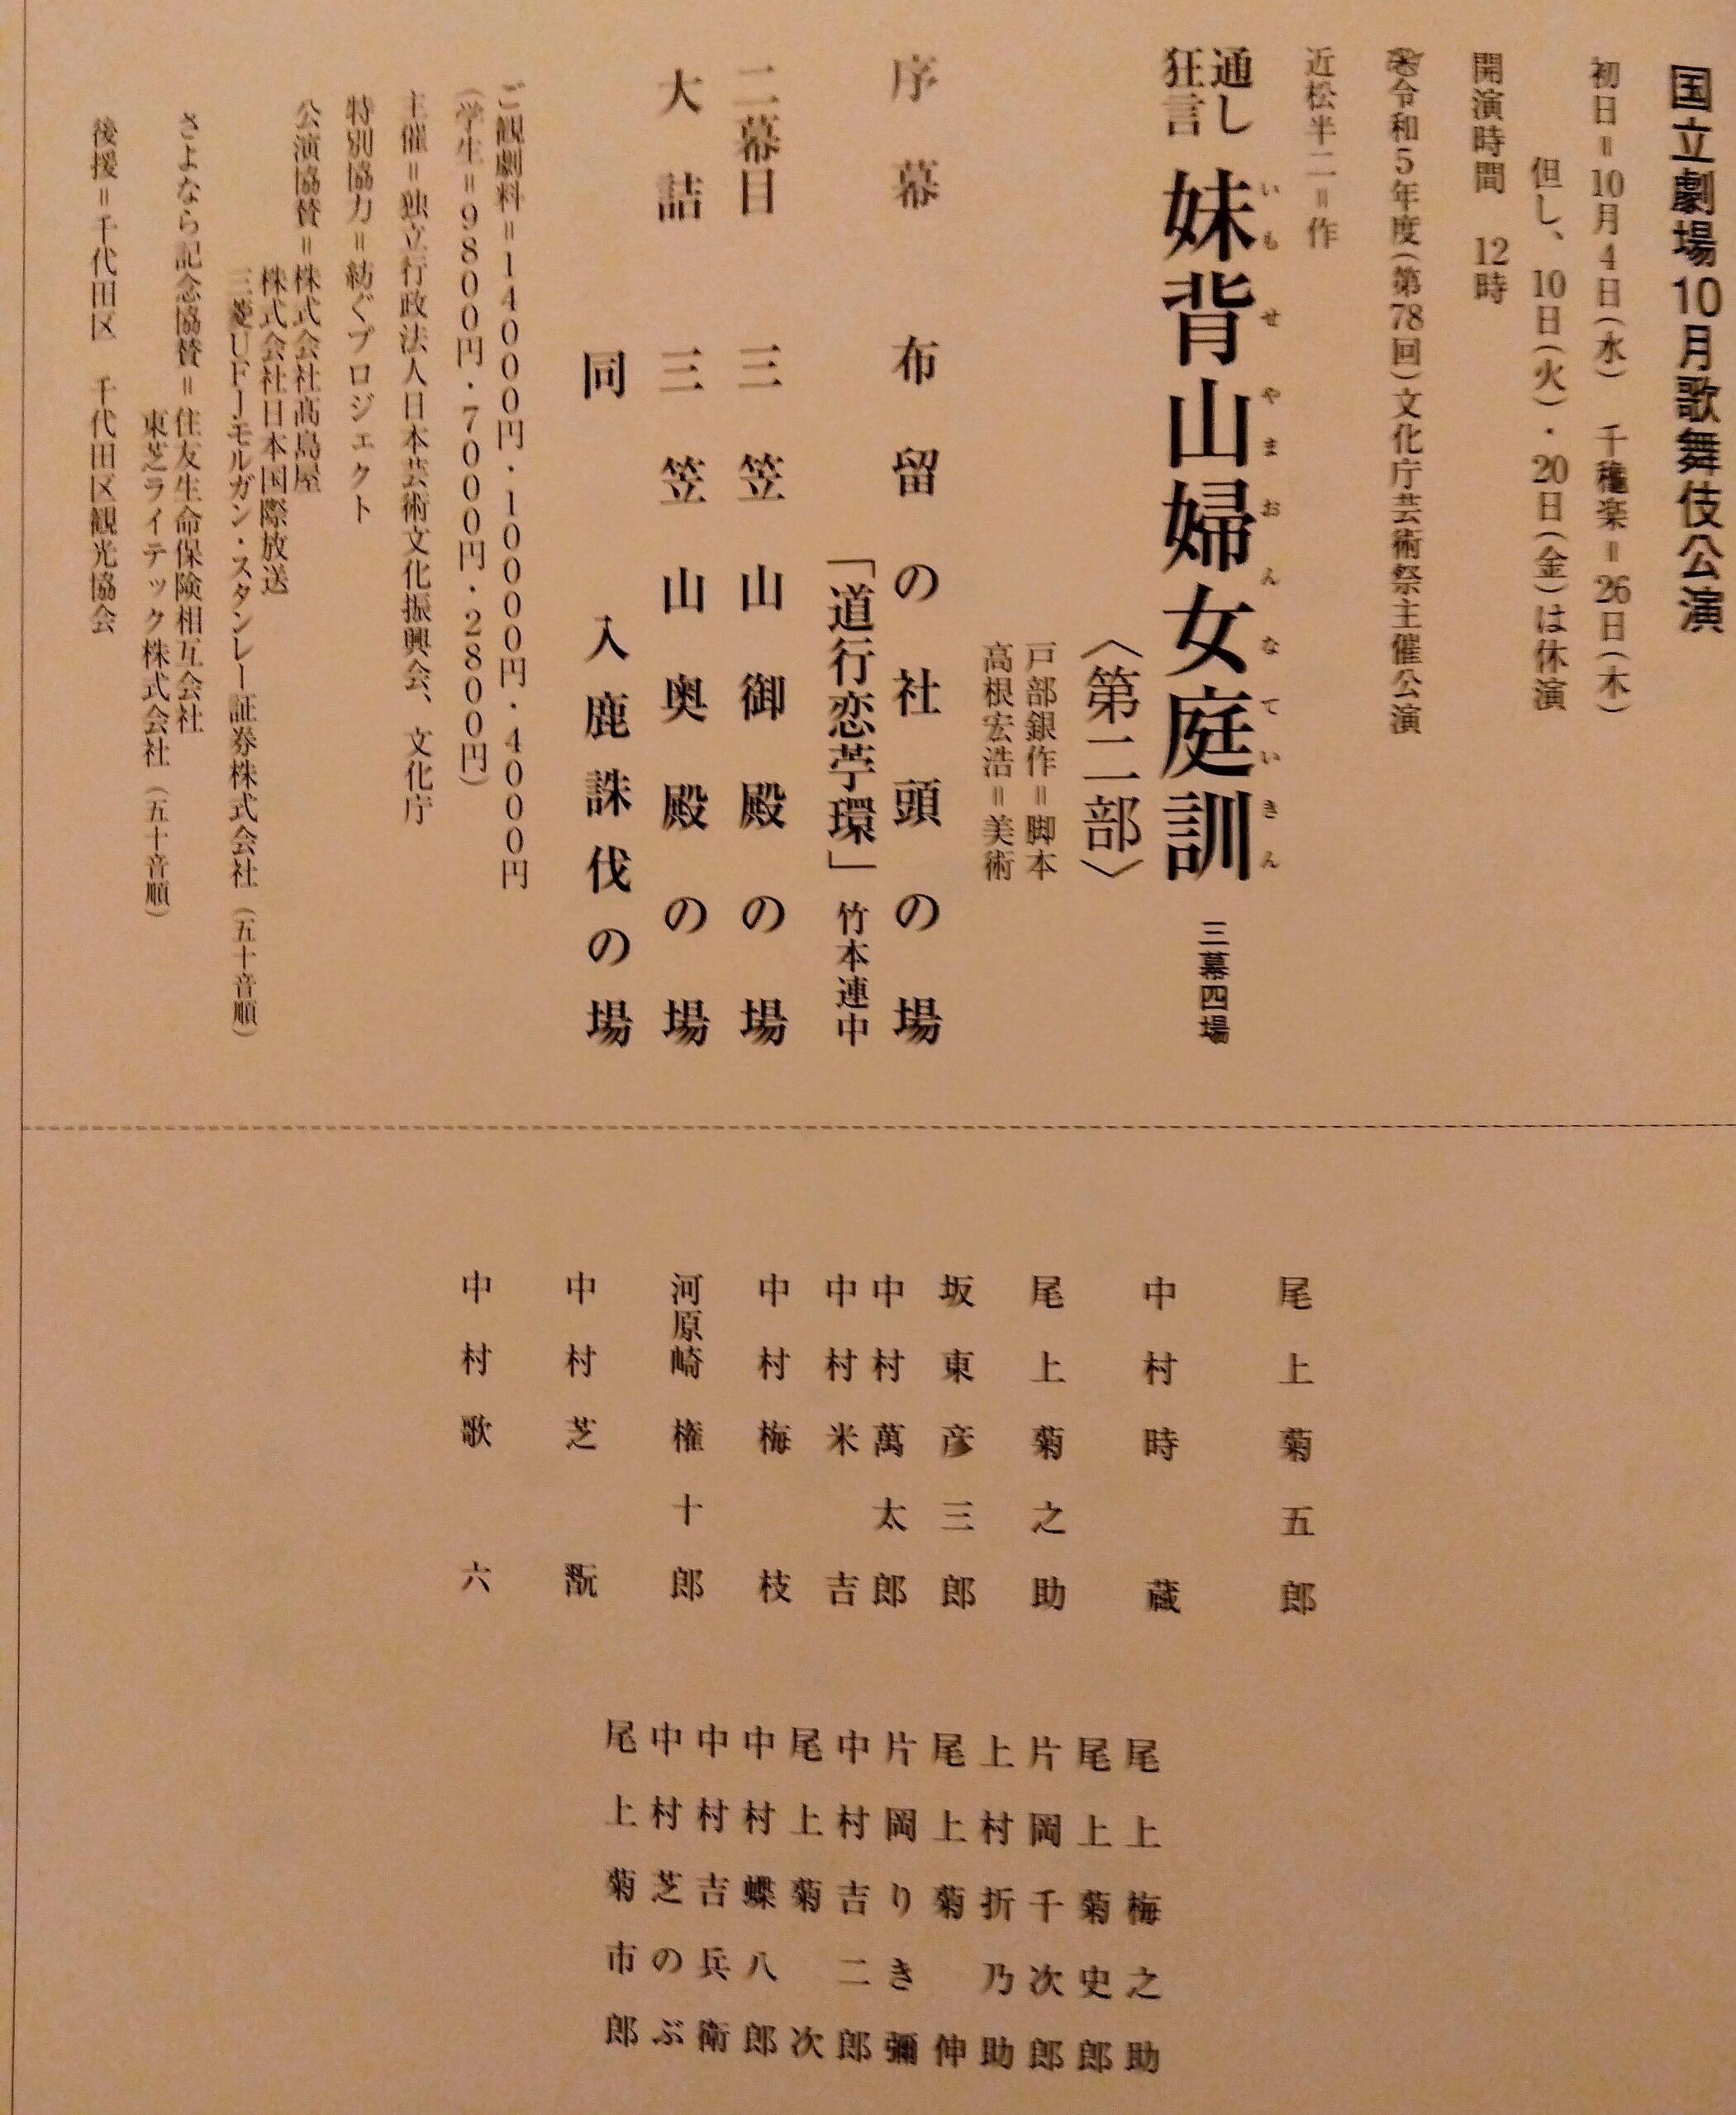 国立劇場10月歌舞伎公演
初日＝10月4日(水)　千穐楽＝26日(木)
但し、10日(火)・20日(金)は休演
開演時間　12時
令和5年度(第78回)文化庁芸術祭主催公演
近松半二＝作
通し狂言 妹背山婦女庭訓 三幕四場
いもせやまおんなていきん
〈第二部〉
戸部銀作＝脚本
高根宏浩＝美術
序幕　布留の社頭の場
「道行恋苧環」竹本連中
二幕目　三笠山御殿の場
大詰　三笠山奥殿の場
同　入鹿誅伐の場
ご観劇料＝14000円・10000円・4000円
(学生＝9800円・7000円・2800円)
主催＝独立行政法人日本芸術文化振興会、文化庁
特別協力＝紡ぐプロジェクト
公演協賛＝株式会社髙島屋
株式会社日本国際放送
三菱UFJモルガン・スタンレー証券株式会社（五十音順）
さよなら記念協賛＝住友生命保険相互会社
東芝ライテック株式会社（五十音順）
後援＝千代田区　千代田区観光協会
尾上菊五郎
中村時蔵
尾上菊之助
坂東彦三郎
中村萬太郎
中村米吉
中村梅枝
河原崎権十郎
中村芝翫
中村歌六
尾上梅之助
尾上菊史郎
片岡千次郎
上村折乃助
尾上菊伸
片岡りき彌
中村吉二郎
尾上菊次
中村蝶八郎
中村吉兵衛
中村芝のぶ
尾上菊市郎